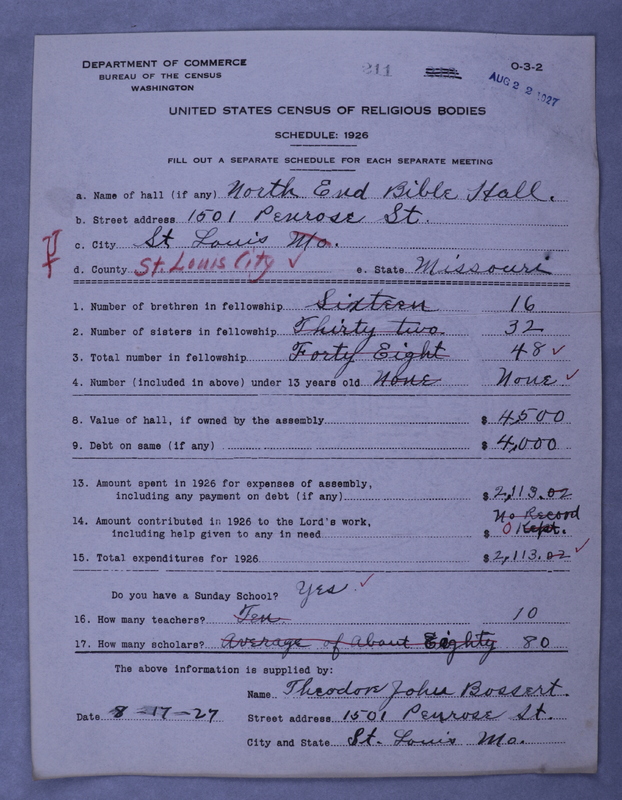 DEPARTMENT OF COMMERCE
BUREAU OF THE CENSUS
WASHINGTON
211
O-3-2
AUG 22 1927
UNITED STATES CENSUS OF RELIGIOUS BODIES
SCHEDULE: 1926
FILL OUT A SEPARATE SCHEDULE FOR EACH SEPARATE MEETING
a. Name of hall (if any) North End Bible Hall.
b. Street address 1501 Penrose St.
c. City St Louis Mo.
d. County St. Louis City ✓ e. State Missouri
1. Number of brethren in fellowship Sixteen 16
2. Number of sisters in fellowship Thirty two. 32
3. Total number in fellowship Forty Eight 48 ✓
4. Number (included in above) under 13 years old None None ✓
8. Value of hall, if owned by the assembly $ 4500
9. Debt on same (if any) $ 4,000
13. Amount spent in 1926 for expenses of assembly,
including any payment on debt (if any) $ 2,113.02
14. Amount contributed in 1926 to the Lord's work, No Record
including help given to any in need $ 0 Kept.
15. Total expenditures for 1926 $ 2,113.02 ✓
Do you have a Sunday School? Yes ✓
16. How many teachers? Ten 10
17. How many scholars? Average of About Eighty 80
The above information is supplied by:
Name Theodore John Bossert.
Date 8-17-27 Street address 1501 Penrose St.
City and State St. Louis Mo.